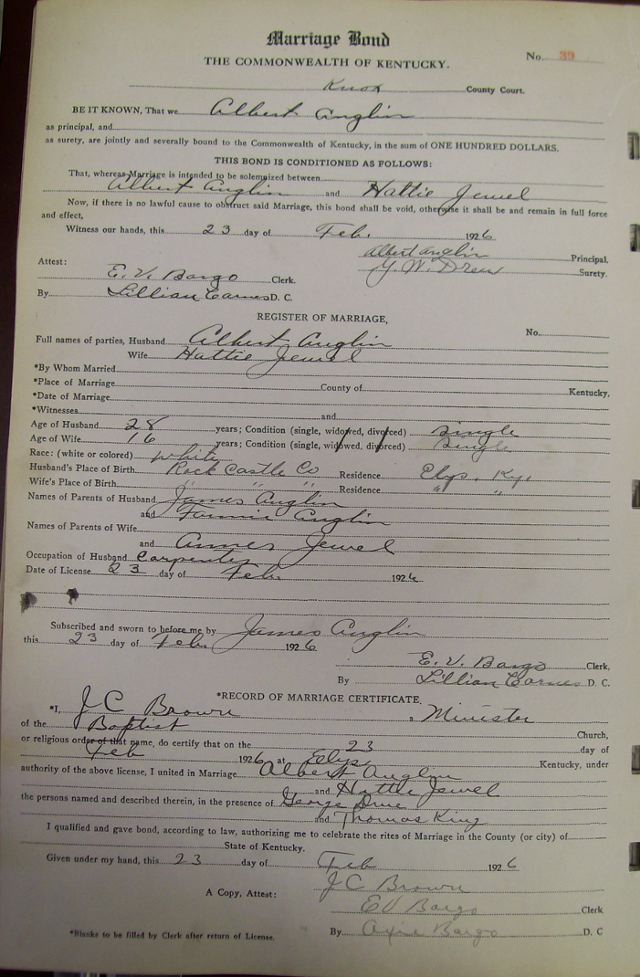 Marriage Bond
THE COMMONWEALTH OF KENTUCKY.
No. 39
Knox County Court.
BE IT KNOWN, That we Albert Anglin
as principal, and
as surety, are jointly and severally bound to the Commonwealth of Kentucky, in the sum of ONE HUNDRED DOLLARS.
THIS BOND IS CONDITIONED AS FOLLOWS:
That, whereas Marriage is intended to be solemnized between
Albert Anglin and Hattie Jewel
Now, if there is no lawful cause to obstruct said Marriage, this bond shall be void, otherwise it shall be and remain in full force
and effect,
Witness our hands, this 23 day of Feb. 1926
Albert Anglin Principal.
Attest: G. W. Drew Surety.
E. V. Bargo Clerk.
By Lillian Carnes D. C.
REGISTER OF MARRIAGE,
No.
Full names of parties, Husband Albert Anglin
Wife Hattie Jewel
*By Whom Married
*Place of Marriage County of Kentucky.
*Date of Marriage
*Witnesses and
Age of Husband 28 years; Condition (single, widowed, divorced) Single
Age of Wife 16 years; Condition (single, widowed, divorced) Single
Race: (white or colored) white
Husband's Place of Birth Rock Castle Co Residence Elys, Ky.
Wife's Place of Birth " " " Residence " "
Names of Parents of Husband James Anglin
and Fannie Anglin
Names of Parents of Wife
and Jewel
Occupation of Husband Carpenter
Date of License 23 day of Feb. 1926
Subscribed and sworn to before me by James Anglin
this 23 day of Feb. 1926
E. V. Bargo Clerk,
By Lillian Carnes D. C.
*RECORD OF MARRIAGE CERTIFICATE,
*I, J C Brown, Minister
of the Baptist Church,
or religious order of that name, do certify that on the 23 day of
Feb 1926 at Elys Kentucky, under
authority of the above license, I united in Marriage Albert Anglin
and Hattie Jewel
the persons named and described therein, in the presence of George
and Thomas King
I qualified and gave bond, according to law, authorizing me to celebrate the rites of Marriage in the County (or city) of
State of Kentucky.
Given under my hand, this 23 day of Feb 1926
J C Brown
A Copy, Attest: E V Bargo Clerk
*Blanks to be filled by Clerk after return of License. By Bargo D. C